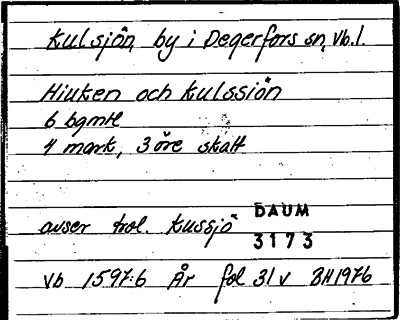 Kulsjön, by i Degerfors sn, Vb.l.
Hiuken och Kulssiön
6 bqmtl
4 mark, 3 öre skatt
avser trol. Kussjö
DAUM
3173
Vb 1597:6 År fol 31v BH1976